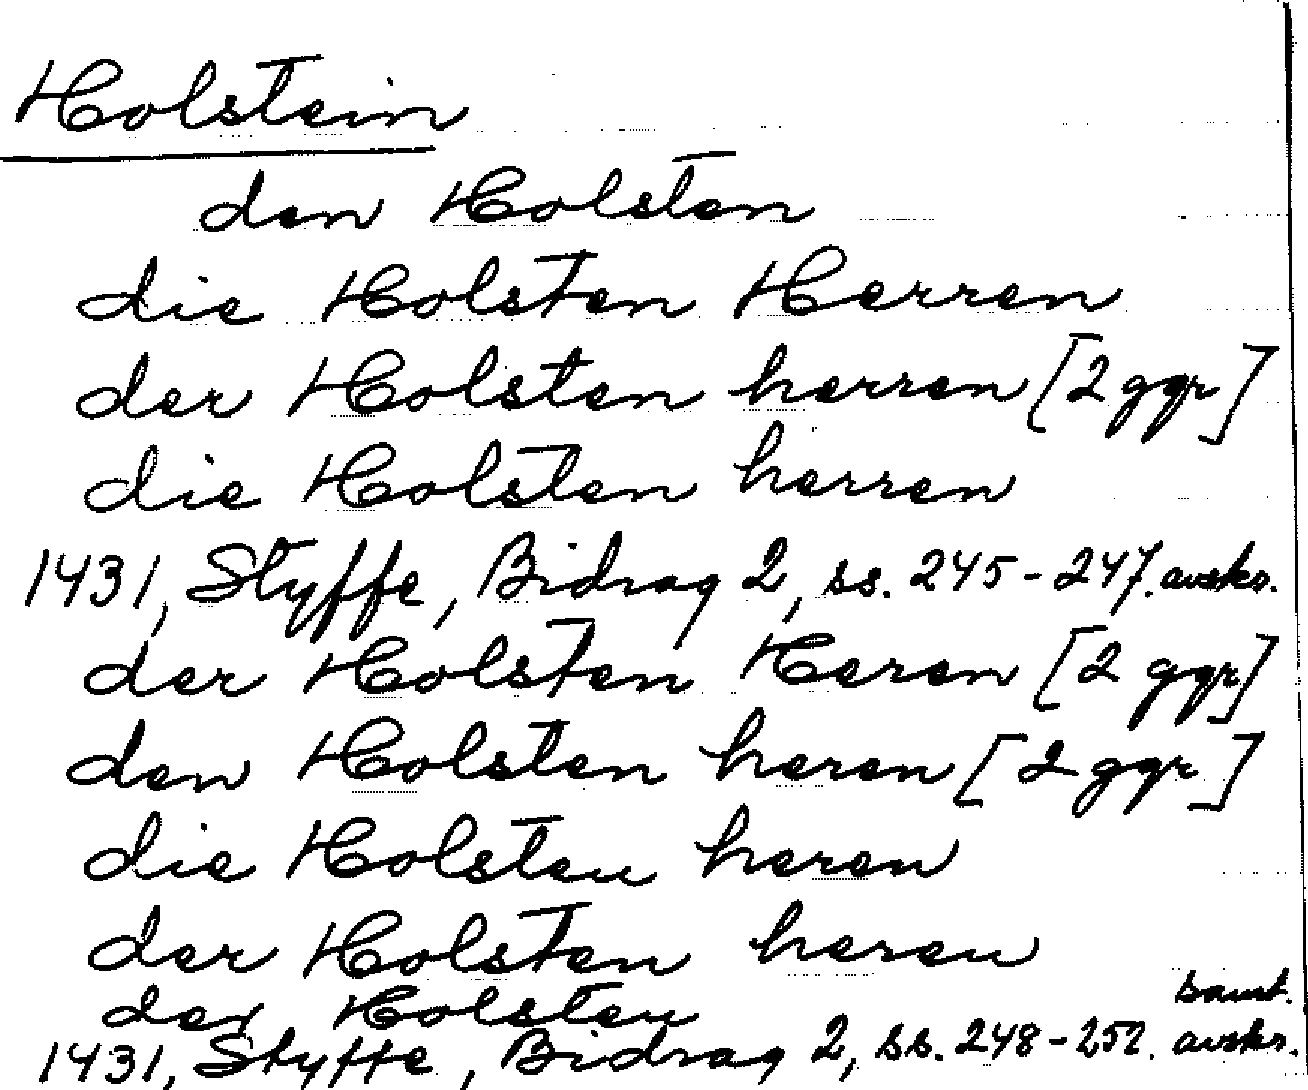 Holstein
den Holsten
die Holsten Herren
der Holsten herren [2 ggr]
die Holsten herren
1431, Styffe, Bidrag 2, ss. 245-247. avskr.
der Holsten Heren [2 ggr]
den Holsten heren [2 ggr]
die Holsten heren
der Holsten heren
der Holsten samt.
1431, Styffe, Bidrag 2, ss. 248-252. avskr.